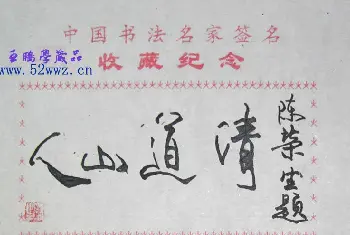 中国书法名家签名
收藏纪念
亚鹏学藏品
www.52wwz.cn
清道山人
陈荣生题